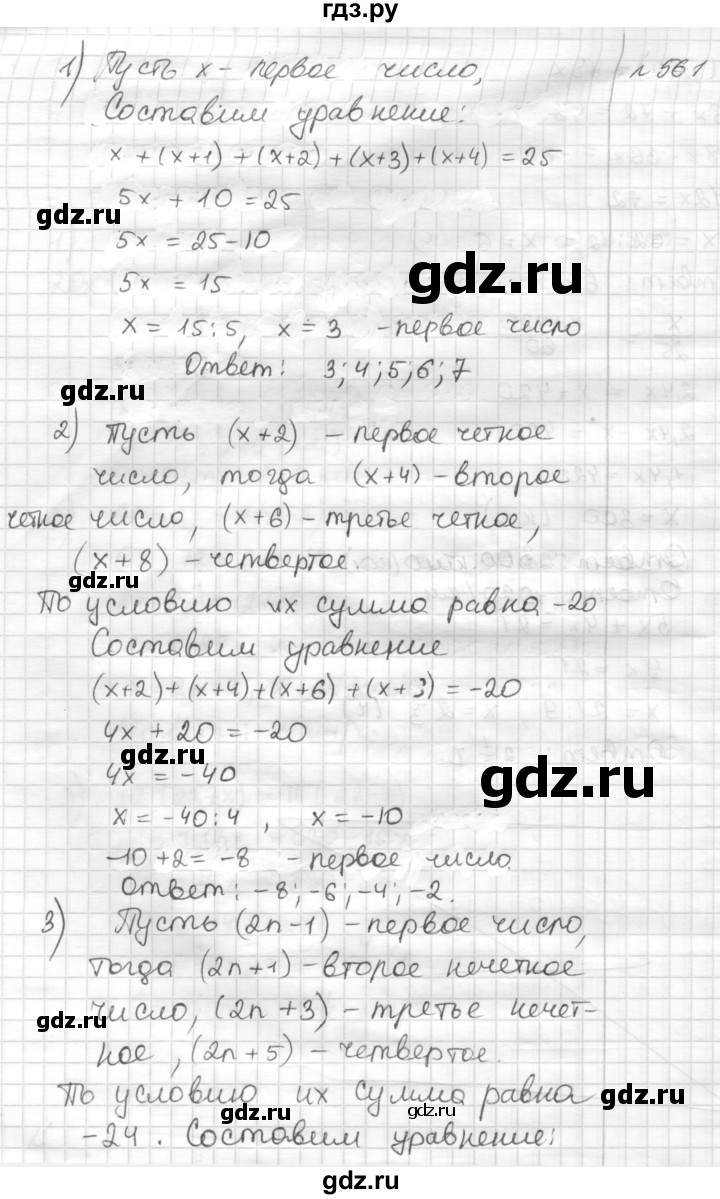 гдз.ру
1) Пусть х - первое число, №561
Составим уравнение:
х + (х+1) + (х+2) + (х+3) + (х+4) = 25
5х + 10 = 25
gdz.ru
5х = 25-10
gdz.ru
5х = 15
х = 15:5, х = 3 - первое число
Ответ: 3; 4; 5; 6; 7
gdz.ru
2) Пусть (х+2) - первое четное
число, тогда (х+4) - второе
четное число, (х+6) - третье четное,
(х+8) - четвертое.
gdz.ru
По условию их сумма равна -20
Составим уравнение
(х+2)+(х+4)+(х+6)+(х+8) = -20
4х + 20 = -20
gdz.ru
4х = -40
gdz.ru
х = -40:4, х = -10
-10+2 = -8 - первое число.
Ответ: -8; -6; -4; -2.
3) Пусть (2n-1) - первое число,
тогда (2n+1) - второе нечетное
число, (2n+3) - третье нечет-
gdz.ru
ное, (2n+5) - четвертое.
По условию их сумма равна
gdz.ru
gdz.ru
gdz.ru
-24. Составим уравнение:
gdz.ru